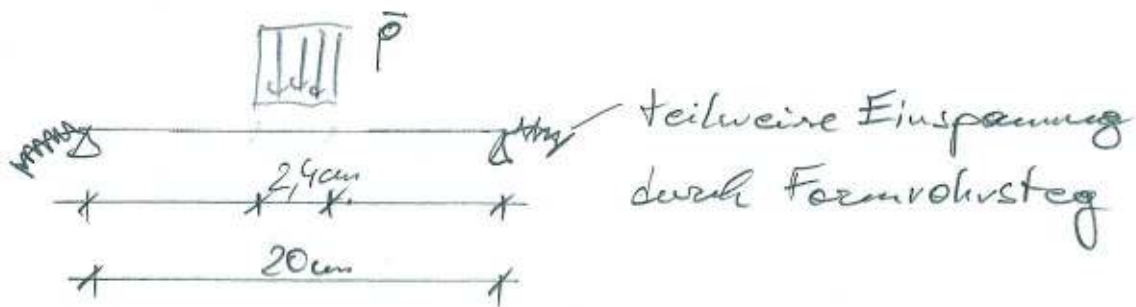 p̄
teilweise Einspannung
durch Formrohrsteg
2,4cm
20cm